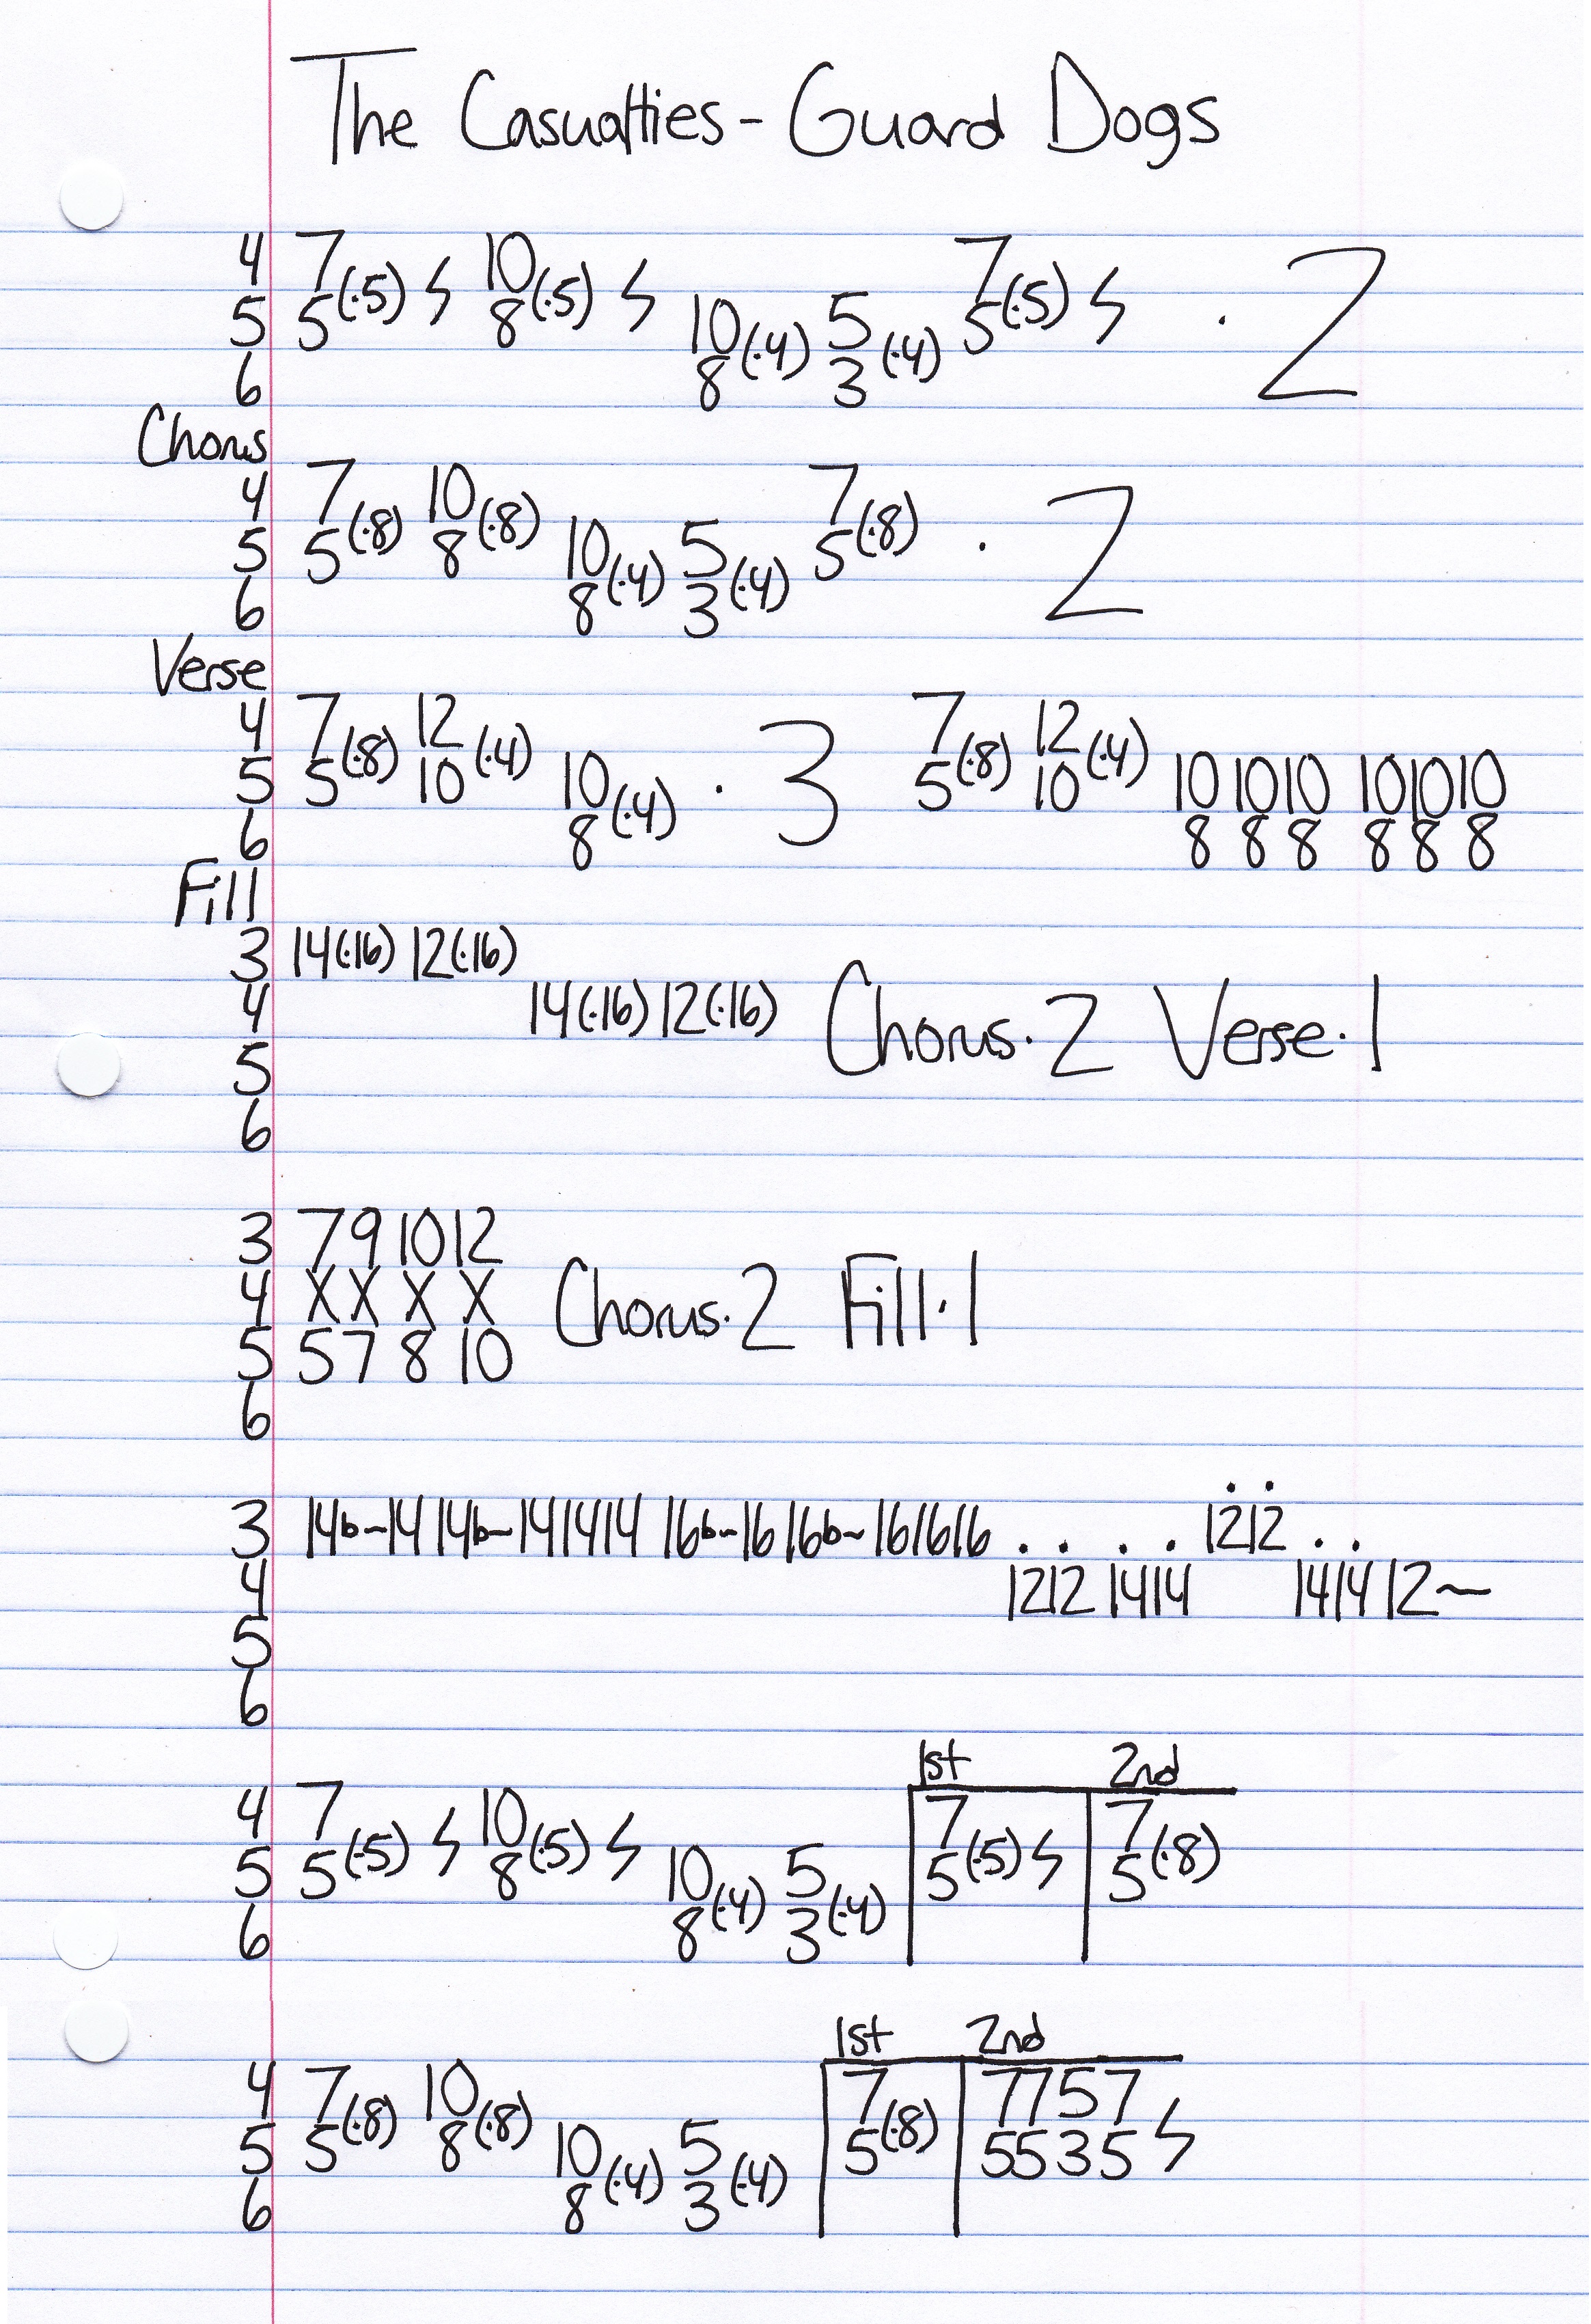 The Casualties - Guard Dogs
4 7 10 7
5 5(·5) ϟ 8(·5) ϟ 10 5 5(·5) ϟ · 2
6 8(·4) 3(·4)
Chorus
4 7 10 7
5 5(·8) 8(·8) 10 5 5(·8) · 2
6 8(·4) 3(·4)
Verse
4 7 12 7 12
5 5(·8) 10(·4) 10 · 3 5(·8) 10(·4) 10 10 10 10 10 10
6 8(·4) 8 8 8 8 8 8
Fill
3 14(·16) 12(·16)
4 14(·16) 12(·16) Chorus·2 Verse·1
5
6
3 7 9 10 12
4 X X X X Chorus·2 Fill·1
5 5 7 8 10
6
3 14b~14 14b~14 14 14 16b~16 16b~16 16 16 . . . . 12 12 . .
4 12 12 14 14 14 14 12~
5
6
1st 2nd
4 7 10 7 7
5 5(·5) ϟ 8(·5) ϟ 10 5 5(·5) ϟ 5(·8)
6 8(·4) 3(·4)
1st 2nd
4 7 10 7 7 7 5 7
5 5(·8) 8(·8) 10 5 5(·8) 5 5 3 5 ϟ
6 8(·4) 3(·4)